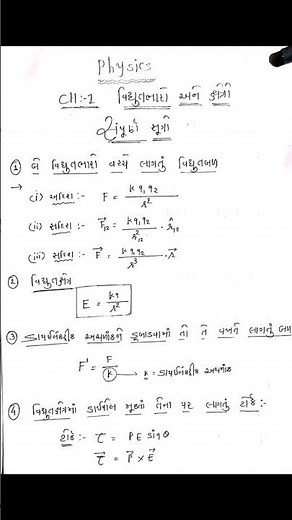 Physics
CH:-1 વિદ્યુતભારો અને ક્ષેત્રો
સંપૂર્ણ સૂત્રો
① બે વિદ્યુતભારો વચ્ચે લાગતું વિદ્યુતબળ
→ (i) અદિશ :- F = kq₁q₂ / r²
(ii) સદિશ :- F⃗₁₂ = kq₁q₂ / r²₁₂ · r̂₁₂
(iii) સદિશ :- F⃗ = kq₁q₂ / r³ · r⃗
② વિદ્યુતક્ષેત્ર
E = kq / r²
③ ડાયઇલેક્ટ્રીક અચળાંકને ડૂબાડવામાં તો તે વખતે લાગતું બળ
F' = F / K → K = ડાયઇલેક્ટ્રીક અચળાંક
④ વિદ્યુતક્ષેત્રમાં ડાઈપોલ મૂકતાં તેના પર લાગતું ટોર્ક :-
ટોર્ક :- τ = PE sinθ
τ⃗ = P⃗ × E⃗